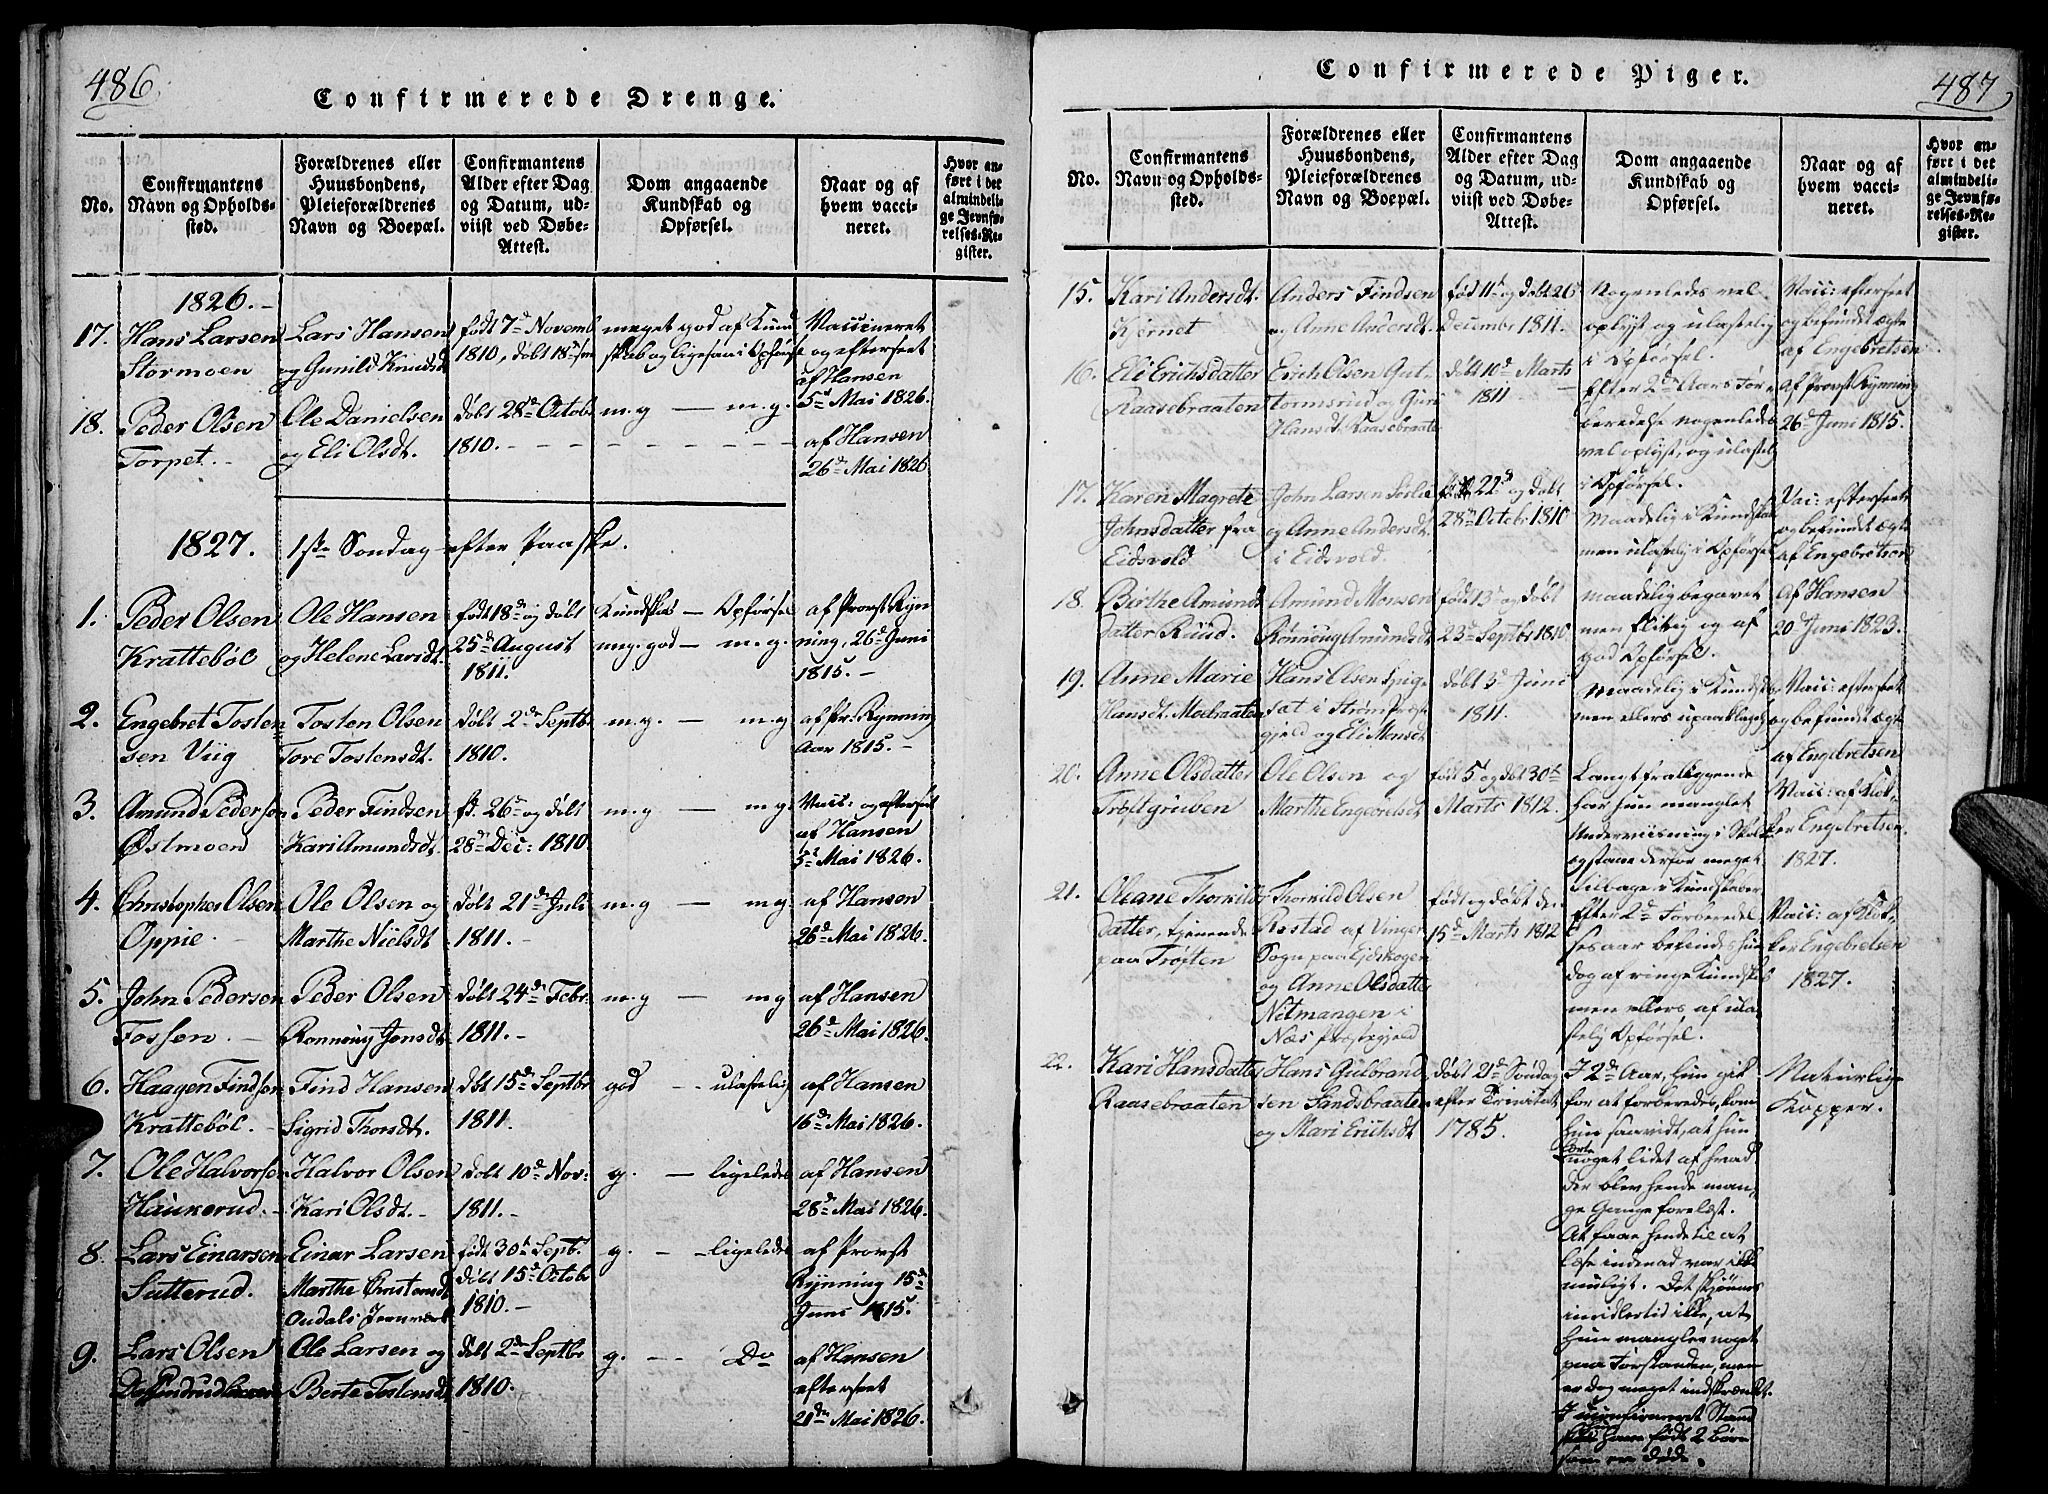 486.
Confirmerede Drenge.
No.
Confirmantens
Navn og Opholds-
sted.
Forældrenes eller
Huusbondens,
Pleieforældrenes
Navn og Boepæl.
Confirmantens
Alder efter Dag
og Datum, ud-
viist ved Døbe-
Attest.
Dom angaaende
Kundskab og
Opførsel.
Naar og af
hvem vacci-
neret.
Hvor an-
ført i det
almindeli-
ge Jevnfø-
relses-Re-
gister.
1826.-
17.
Hans Larsen
Stormoen
Lars Hansen
og Gunild Knudsd
født 7de Novemb
1810, døbt 18de
meget god af Kund
skab og ligesaa i Opførs
Vaccineret
og efterseet
af Hansen
5te Mai 1826.
18.
Peder Olsen
Torpet.-
Ole Danielsen
og Eli Olsdt.
Døbt 28de Octobr
1810.-
m.g — m.g.
af Hansen
26de Mai 1826
1827. 1ste Søndag efter Paaske.
1.
Peder Olsen
Kratteból
Ole Hansen
og Helene Larsdt.
født 18de og døbt
25de August
1811.
Kundskab — Opførsel
meg. god — m.g.
af Provst Ryn
ning, 26de Juni
1815.-
2.
Engebret Tosten
sen Viig
Tosten Olsen
Tore Tostensdt.
Døbt 2de Septbr
1810.
m.g. — m.g
af Pr: Rynning
Aar 1815.-
3.
Amund Peders͏en
Østmoen
Peder Findsen
Kari Amundsdt.
fd. 26de og døbt
28de Dec: 1810.
m.g — m.g.
Vacc: og efterseet
af Hansen
5te Mai 1826.
4.
Christopher Olsen
Oppie.-
Ole Olsen og
Marthe Nielsdt
Døbt 21de Juli
1811.-
m.g — m.g
af Hansen
26de Mai 1826.
5.
John Pedersen
Fossen.-
Peder Olsen
Rønnoug Jensdt
Døbt 24de Febr.
1811.-
m.g — m.g
af Hansen
26de Mai 1826.
6.
Haagen Findsen
Kratteból.-
Find Hansen
Sigrid Thorsdt.
Døbt 15de Septbr
1811.
god — ulastelig
af Hansen
16de Mai 1826.
7.
Ole Halvorsen
Haukerud.-
Halvor Olsen
Kari Olsdt.-
Døbt 10de Nov:
1811.-
g. — ligeledes
af Hansen
28de Mai 1826.
8.
Lars Einarsen
Sætterud.
Einar Larsen
Marthe Christensdt
Oudals Jernverk
født 30te Septb.
Døbt 15de Octobr
1810.-
g. — ligeledes
af Provst
Rynning 15de
Juni 1815.
9.
Lars Olsen
Ole Larsen og
Berte Tostensdt
Døbt 2de Septbr
1810.
g. — Do
af Hansen
efterseet
21de Mai 1826.
487
Confirmerede Piger.
No.
Confirmantens
Navn og Opholds-
sted.
Forældrenes eller
Huusbondens,
Pleieforældrenes
Navn og Boepæl.
Confirmantens
Alder efter Dag
og Datum, ud-
viist ved Døbe-
Attest.
Dom angaaende
Kundskab og
Opførsel.
Naar og af
hvem vacci-
neret.
Hvor an-
ført i det
almindeli-
ge Jevnfø-
relses-Re-
gister.
15.
Kari Andersdt.
Kjernet
Anders Findsen
og Anne Andersdt.
fød 11te og døbt 26de
Decembr 1811.
Nogenledes vel
oplyst og ulastelig
i Opførsel.
Vacc: efterseet
og befundet ægte
af Engebretsen
16.
Eli Erichsdatter
Raasebraaten
Erich Olsen Gut-
tormsrud og Guri
Hansdt. Raasebraate
døbt 10de Marts
1811
Efter 2de Aars For-
beredelse nogenledes
vel oplyst, og ulastelig
i Opførsel.
af Provst Rynning
26de Juni 1815.
17.
Karen Magrete
Johnsdatter fra
Eidsvold
John Larsen Sørlie
og Anne Andersdt.
i Eidsvold.
22de og døbt
28de Octobr 1810
Maadelig i Kundskab
men ulastelig i Opførsel
Vacc: efterseet
og befundet ægte
af Engebretsen
18.
Birthe Amunds
datter Ruud.
Amund Monsen
Rønnoug Amundsdt
født 13de og døbt
23de Septbr 1810
Maadelig begavet
men flitig og af
god Opførsel.
af Hansen
20de Juni 1823.
19.
Anne Marie
Hansdt. Moebraaten
Hans Olsen Spige
sæt i Strøm Præste
gjeld og Eli Monsdt
Døbt 3de Juni
1811.
Maadelig i Kundsk.
men ellers upaaklagelig
Vacc: efterseet
og befundet ægte
af Engebretsen
20.
Anne Olsdatter
Trøftgruben
Ole Olsen og
Marthe Engebretsdt
født 5te og døbt 30te
Marts 1812.
Langt fraliggende
har hun manglet
Underviisning i Skole
og staaer derfor meget
tilbage i Kundskaber
Vacc: af Klok-
ker Engebretsen.
1827.
21.
Oleane Thorkilds
datter, tjenende
paa Trøften
Thorkild Olsen
Rastad af Vinger
Sogn paa Eidskogen
og Anne Olsdatter
Nitmangen i
Næs Præstegjeld
født og døbt den
15de Marts 1812
Efter 2de Forberedel
ses aar befindes hun
dog af ringe Kundskab
men ellers af ula-
stelig Opførsel.
Vacc: af Klok-
ker Engebretsen
1827.
22.
Kari Hansdatter
Raasebraaten
Hans Gulbrand
sen Sandsbraaten
og Mari Erichsdt
døbt 21de Søndag
efter Trinitatis
1785.
I 2de Aar, hun gik
for at forberedes, kom
hun saavidt, at hun
lærte
noget lidet af hvad
der blev hende man-
ge Gange forelæst.
At faae hende til at
læse indenad var ikke
muligt. Det skjønnes
imidlertid ikke, at
hun mangler noget
paa Forstanden, men
er dog meget indskrænket.
I uconfirmeret Stand
har hun født 2 Børn
som ere døde.
Naturlige
Kopper.